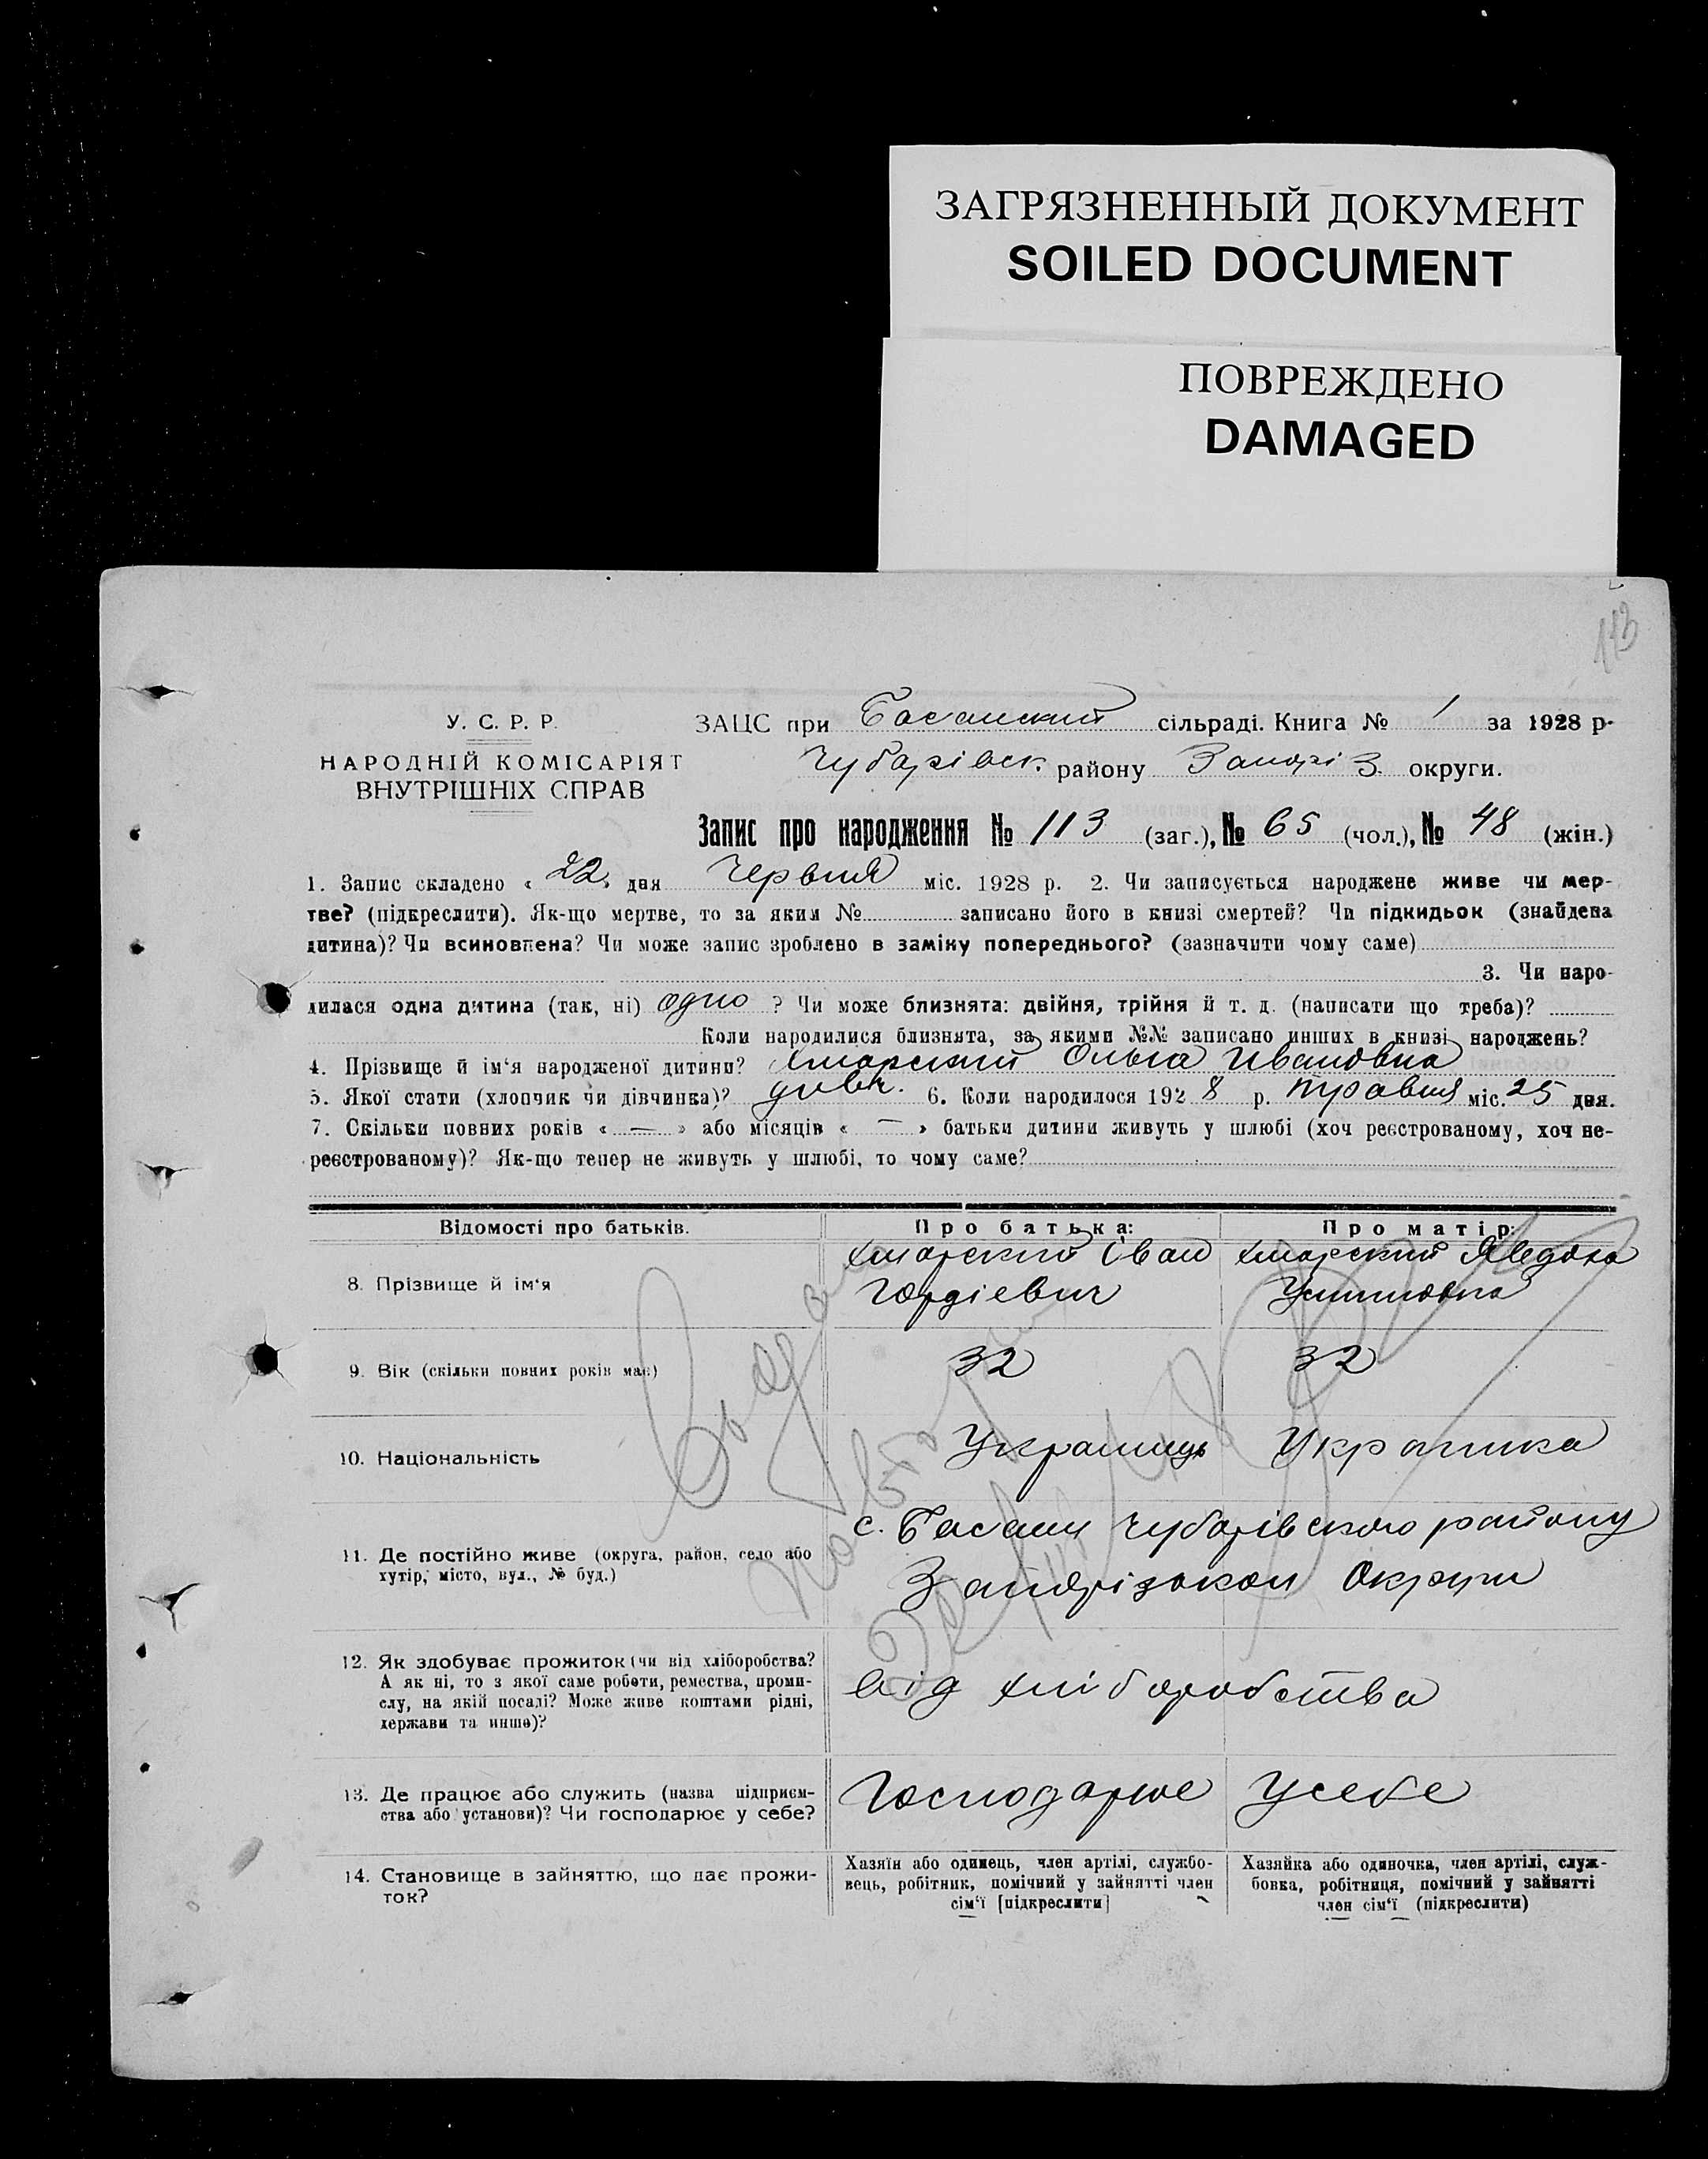 ЗАГРЯЗНЕННЫЙ ДОКУМЕНТ
SOILED DOCUMENT
ПОВРЕЖДЕНО
DAMAGED
113
У. С. Р. Р.
НАРОДНІЙ КОМІСАРІЯТ
ВНУТРІШНІХ СПРАВ
ЗАЦС при Басанский сільраді. Книга № 1 за 1928 р.
Чубарівск. району Запорі З. округи.
Запис про народження № 113 (заг.), № 65 (чол.), № 48 (жін.)
1. Запис складено « 22 » дня Червня міс. 1928 р. 2. Чи записується народжене живе чи мер-
тве? (підкреслити). Як-що мертве, то за яким № записано його в книзі смертей? Чи підкидьок (знайдена
дитина)? Чи всиновлена? Чи може запис зроблено в заміну попереднього? (зазначити чому саме)
3. Чи наро-
дилася одна дитина (так, ні) одно ? Чи може близнята: двійня, трійня й т. д. (написати що треба)?
Коли народилися близнята, за якими №№ записано инших в книзі народжень?
4. Прізвище й ім‘я народженої дитини? Хмарский Ольга Ивановна
5. Якої стати (хлопчик чи дівчинка)? дівч. 6. Коли народилося 192 8 р. травня міс. 25 дня.
7. Скільки повних років « — » або місяців « — » батьки дитини живуть у шлюбі (хоч реєстрованому, хоч не-
реєстрованому)? Як-що тепер не живуть у шлюбі, то чому саме?
Відомості про батьків. Про батька: Про матір:
8. Прізвище й ім‘я
Хмарский Іван
Гордіевич
Хмарский Явдоха
9. Вік (скільки повних років має) 32 32
10. Національність Украинець Украинка
11. Де постійно живе (округа, район, село або
хутір, місто, вул., № буд.)
с. Басань Чубарівського району
Запорізькои Округи
12. Як здобуває прожиток (чи від хліборобства?
А як ні, то з якої саме роботи, ремества, проми-
слу, на якій посаді? Може живе коштами рідні,
держави та инше)?
від хліборобства
13. Де працює або служить (назва підприєм-
ства або установи)? Чи господарює у себе?
Господарюе Усебе
14. Становище в зайняттю, що дає прожи-
ток?
Хазяїн або одинець, член артілі, службо-
вець, робітник, помічний у зайнятті член
сім‘ї [підкреслити]
Хазяйка або одиночка, член артілі, служ-
бовка, робітниця, помічний у зайнятті
член сім‘ї (підкреслити)